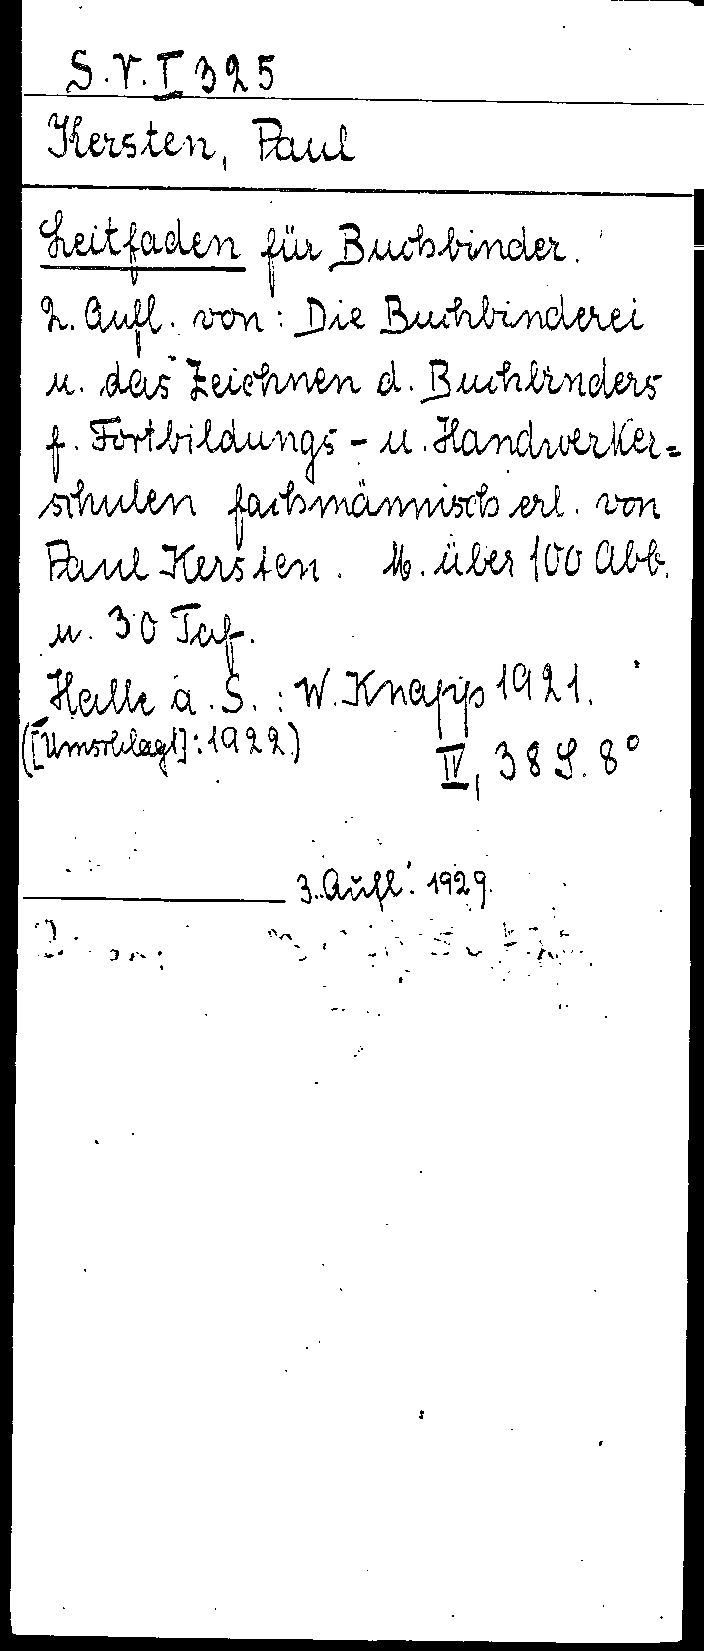 S.V.I 325
Kersten, Paul
Leitfaden für Buchbinder.
2. Aufl. von: Die Buchbinderei
u. das Zeichnen d. Buchbinders
f. Fortbildungs- u. Handwerker=
schulen fachmännisch erl. von
Paul Kersten. M. über 100 Abb.
u. 30 Taf.
Halle a. S.: W. Knapp 1921.
([Umschlagt]: 1922)
IV, 38 S. 8°
3. Aufl. 1929.